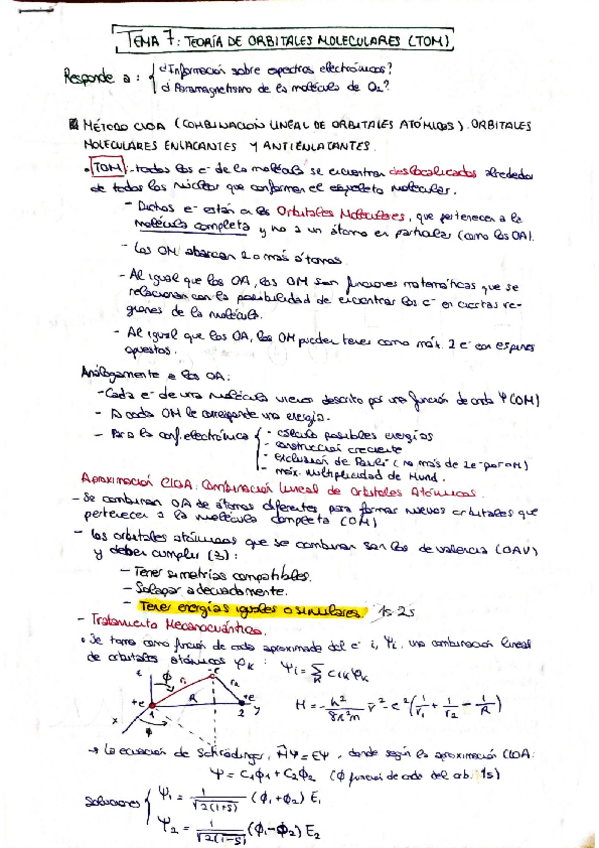 TEMA 7: TEORÍA DE ORBITALES MOLECULARES (TOM)
Responde a: { ¿Información sobre espectros electrónicos?
¿Paramagnetismo de la molécula de O₂?
MÉTODO CLOA (COMBINACIÓN LINEAL DE ORBITALES ATÓMICOS). ORBITALES
MOLECULARES ENLAZANTES Y ANTIENLAZANTES.
• TOM: todos los e⁻ de la molécula se encuentran deslocalizados alrededor
de todos los núcleos que conforman el esqueleto molecular.
- Dichos e⁻ están en los Orbitales Moleculares, que pertenecen a la
molécula completa y no a un átomo en particular (como los OA).
- Los OM abarcan 2 o más átomos.
- Al igual que los OA, los OM son funciones matemáticas que se
relacionan con la posibilidad de encontrar los e⁻ en ciertas re-
giones de la molécula.
- Al igual que los OA, los OM pueden tener como máx. 2 e⁻ con espines
opuestos.
Análogamente a los OA:
- Cada e⁻ de una molécula viene descrito por una función de onda Ψ (OM)
- A cada OM le corresponde una energía.
- Para la conf. electrónica { - cálculo posibles energías
- construcción creciente
- exclusión de Pauli (no más de 2e⁻ por OM)
- máx. multiplicidad de Hund.
Aproximación CLOA: Combinación Lineal de Orbitales Atómicos.
- Se combinan OA de átomos diferentes para formar nuevos orbitales que
pertenecen a la molécula completa (OM)
- Los orbitales atómicos que se combinan son los de valencia (OAV)
y deben cumplir (3):
- Tener simetrías compatibles.
- Solapar adecuadamente.
- Tener energías iguales o similares. 1s 2s
- Tratamiento Mecanocuántico.
• Se toma como función de onda aproximada del e⁻ i, Ψi, una combinación lineal
de orbitales atómicos φk: Ψi = Σ cik φk
k
z φ r₁ -e r₂
+e R +e
1 2 y
x φ
H = - h²/8π²m ∇² - e² (1/r₁ + 1/r₂ - 1/R)
→ La ecuación de Schrödinger, ĤΨ = EΨ, donde según la aproximación CLOA:
Ψ = C₁ϕ₁ + C₂ϕ₂ (ϕ función de onda del orb. 1s)
Soluciones { Ψ₁ = 1/√2(1+S) (ϕ₁ + ϕ₂) E₁
Ψ₂ = 1/√2(1-S) (ϕ₁ - ϕ₂) E₂